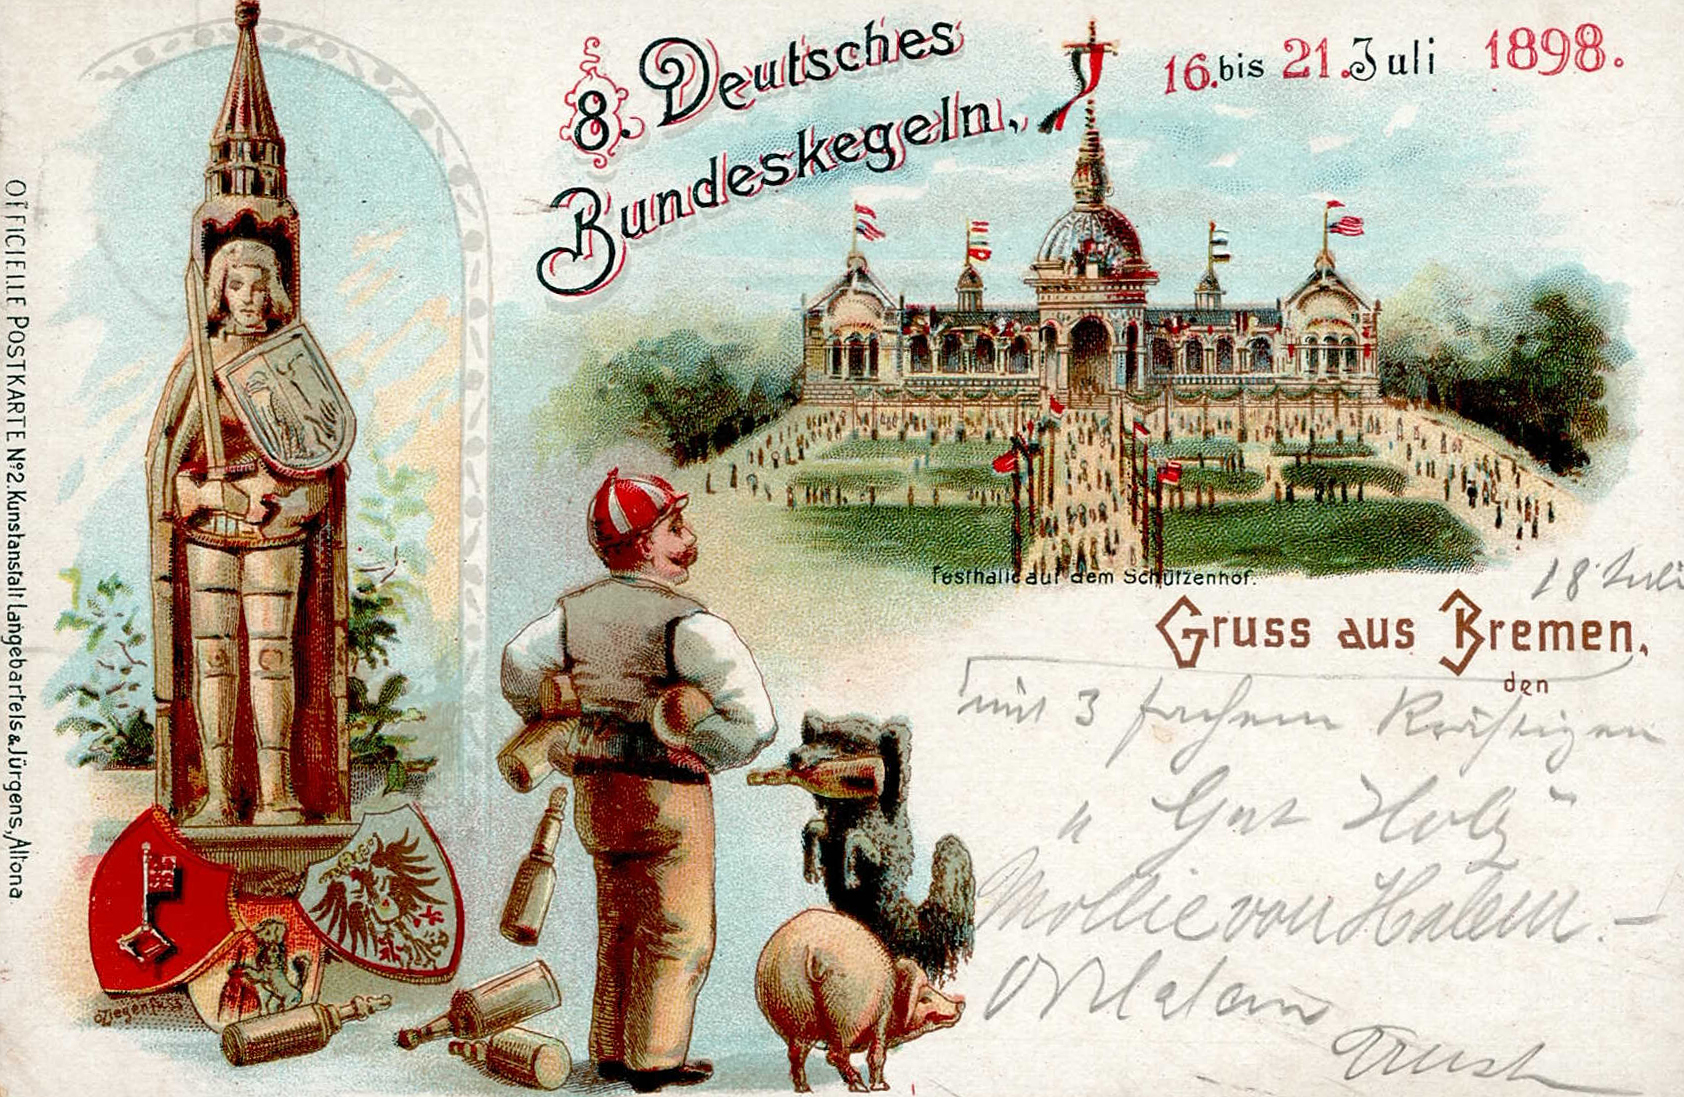 8. Deutsches
Bundeskegeln,
16. bis 21. Juli 1898.
OFFICIELLE POSTKARTE No 2. Kunstanstalt Langebartels & Jürgens, Altona.
Festhalle auf dem Schützenhof.
18 Juli
Gruss aus Bremen,
den
mit 3 fachem Kräftigen
„ Gut Holz "
Mollie von Halem. —